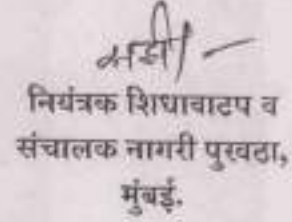 सही/-
नियंत्रक शिधावाटप व
संचालक नागरी पुरवठा,
मुंबई.